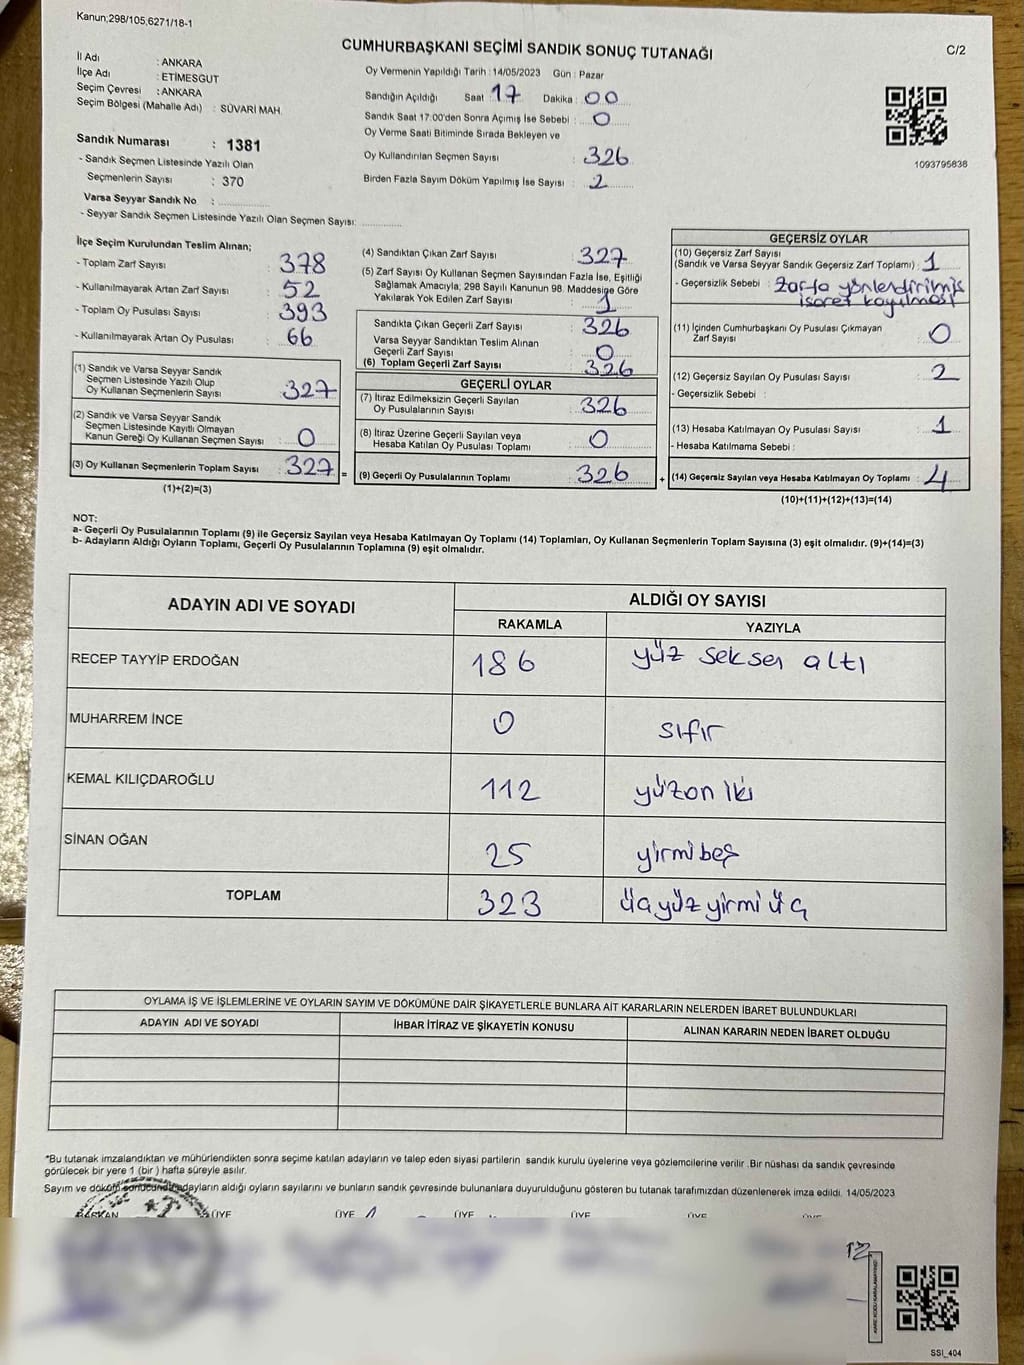 Kanun;298/105,6271/18-1
CUMHURBAŞKANI SEÇİMİ SANDIK SONUÇ TUTANAĞI
C/2
İl Adı : ANKARA
İlçe Adı : ETİMESGUT
Seçim Çevresi : ANKARA
Seçim Bölgesi (Mahalle Adı) : SÜVARİ MAH.
Sandık Numarası : 1381
- Sandık Seçmen Listesinde Yazılı Olan
Seçmenlerin Sayısı : 370
Varsa Seyyar Sandık No :
- Seyyar Sandık Seçmen Listesinde Yazılı Olan Seçmen Sayısı:
Oy Vermenin Yapıldığı Tarih : 14/05/2023 Gün : Pazar
Sandığın Açıldığı Saat : 17 Dakika : 00
Sandık Saat 17:00'den Sonra Açımış İse Sebebi : 0
Oy Verme Saati Bitiminde Sırada Bekleyen ve
Oy Kullandırılan Seçmen Sayısı : 326
Birden Fazla Sayım Döküm Yapılmış İse Sayısı : 2
1093795838
İlçe Seçim Kurulundan Teslim Alınan;
- Toplam Zarf Sayısı : 378
- Kullanılmayarak Artan Zarf Sayısı : 52
- Toplam Oy Pusulası Sayısı : 393
- Kullanılmayarak Artan Oy Pusulası : 66
(1) Sandık ve Varsa Seyyar Sandık
Seçmen Listesinde Yazılı Olup
Oy Kullanan Seçmenlerin Sayısı : 327
(2) Sandık ve Varsa Seyyar Sandık
Seçmen Listesinde Kayıtlı Olmayan
Kanun Gereği Oy Kullanan Seçmen Sayısı : 0
(3) Oy Kullanan Seçmenlerin Toplam Sayısı : 327 =
(1)+(2)=(3)
(4) Sandıktan Çıkan Zarf Sayısı : 327
(5) Zarf Sayısı Oy Kullanan Seçmen Sayısından Fazla İse, Eşitliği
Sağlamak Amacıyla; 298 Sayılı Kanunun 98. Maddesine Göre
Yakılarak Yok Edilen Zarf Sayısı : 1
Sandıkta Çıkan Geçerli Zarf Sayısı : 326
Varsa Seyyar Sandıktan Teslim Alınan
Geçerli Zarf Sayısı : 0
(6) Toplam Geçerli Zarf Sayısı : 326
GEÇERLİ OYLAR
(7) İtiraz Edilmeksizin Geçerli Sayılan
Oy Pusulalarının Sayısı : 326
(8) İtiraz Üzerine Geçerli Sayılan veya
Hesaba Katılan Oy Pusulası Toplamı : 0
(9) Geçerli Oy Pusulalarının Toplamı : 326 +
GEÇERSİZ OYLAR
(10) Geçersiz Zarf Sayısı
(Sandık ve Varsa Seyyar Sandık Geçersiz Zarf Toplamı) : 1
- Geçersizlik Sebebi : Zarfa yönlendirimiş
işaret koyulması
(11) İçinden Cumhurbaşkanı Oy Pusulası Çıkmayan
Zarf Sayısı : 0
(12) Geçersiz Sayılan Oy Pusulası Sayısı : 2
- Geçersizlik Sebebi :
(13) Hesaba Katılmayan Oy Pusulası Sayısı : 1
- Hesaba Katılmama Sebebi :
(14) Geçersiz Sayılan veya Hesaba Katılmayan Oy Toplamı : 4
(10)+(11)+(12)+(13)=(14)
NOT:
a- Geçerli Oy Pusulalarının Toplamı (9) ile Geçersiz Sayılan veya Hesaba Katılmayan Oy Toplamı (14) Toplamları, Oy Kullanan Seçmenlerin Toplam Sayısına (3) eşit olmalıdır. (9)+(14)=(3)
b- Adayların Aldığı Oyların Toplamı, Geçerli Oy Pusulalarının Toplamına (9) eşit olmalıdır.
ADAYIN ADI VE SOYADI ALDIĞI OY SAYISI
RAKAMLA YAZIYLA
RECEP TAYYİP ERDOĞAN 186 yüz seksen altı
MUHARREM İNCE 0 sıfır
KEMAL KILIÇDAROĞLU 112 yüzon iki
SİNAN OĞAN 25 yirmibeş
TOPLAM 323 üçyüzyirmi üç
OYLAMA İŞ VE İŞLEMLERİNE VE OYLARIN SAYIM VE DÖKÜMÜNE DAİR ŞİKAYETLERLE BUNLARA AİT KARARLARIN NELERDEN İBARET BULUNDUKLARI
ADAYIN ADI VE SOYADI İHBAR İTİRAZ VE ŞİKAYETİN KONUSU ALINAN KARARIN NEDEN İBARET OLDUĞU
*Bu tutanak imzalandıktan ve mühürlendikten sonra seçime katılan adayların ve talep eden siyasi partilerin sandık kurulu üyelerine veya gözlemcilerine verilir .Bir nüshası da sandık çevresinde
görülecek bir yere 1 (bir ) hafta süreyle asılır.
Sayım ve döküm sonucunda adayların aldığı oyların sayılarını ve bunların sandık çevresinde bulunanlara duyurulduğunu gösteren bu tutanak tarafımızdan düzenlenerek imza edildi. 14/05/2023
BAŞKAN ÜYE ÜYE ÜYE ÜYE ÜYE ÜYE
12
SSI_404